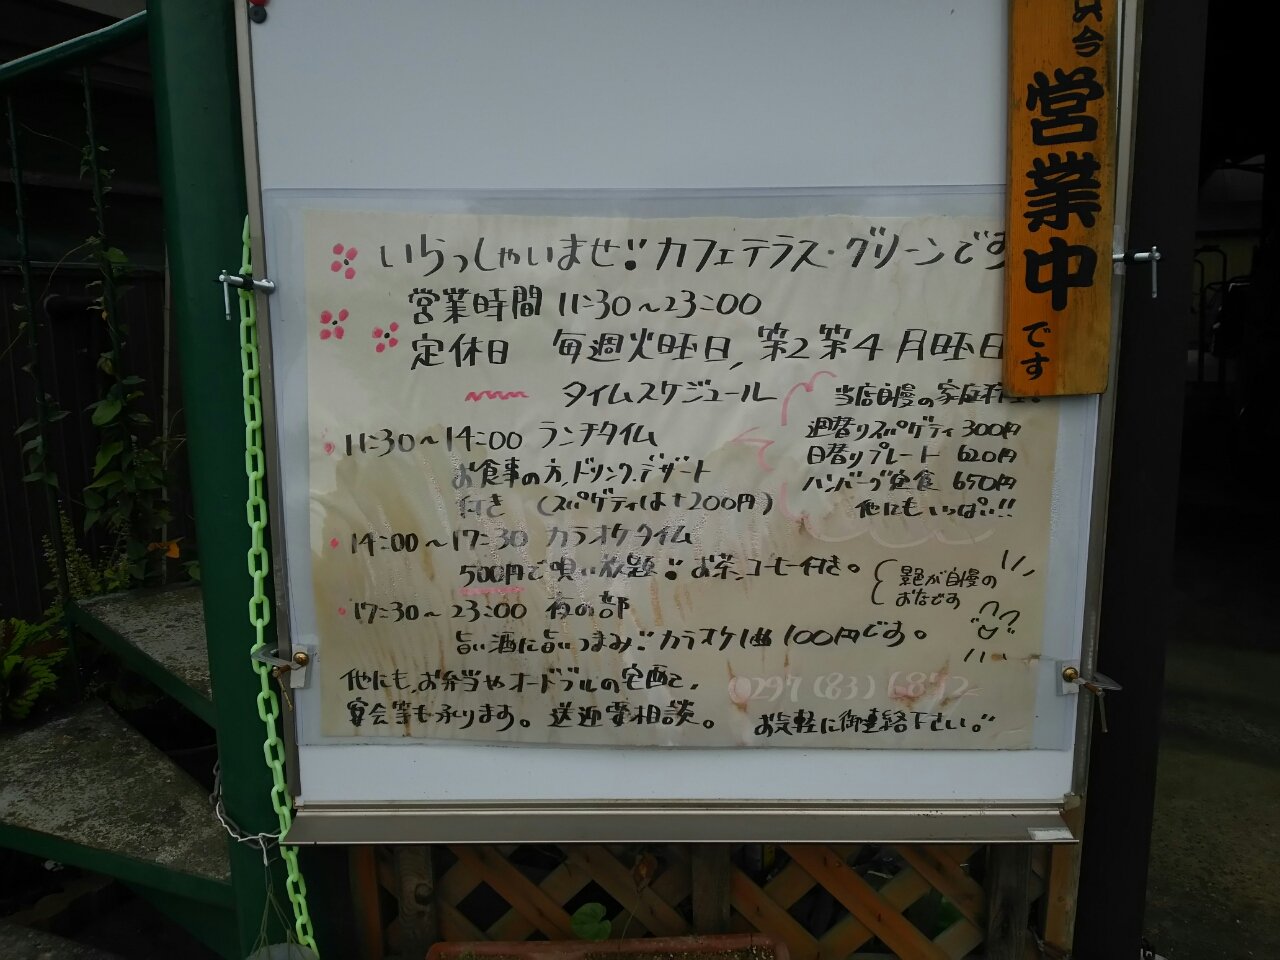 いらっしゃいませ!! カフェテラス・グリーンです
営業時間 11:30～23:00
定休日 毎週火曜日, 第2第4月曜日
タイムスケジュール
11:30～14:00 ランチタイム
お食事の方、ドリンク、デザート
付き (スパゲティは+200円)
14:00～17:30 カラオケタイム
500円で唄い放題!! お茶、コーヒー付き。
17:30～23:00 夜の部
旨い酒に旨いつまみ!! カラオケ1曲100円です。
他にも、お弁当やオードブルの宅配と、
宴会等も承ります。送迎要相談。
当店自慢の家庭料理。
週替りスパゲティ 300円
日替りプレート 620円
ハンバーグ定食 650円
他にもいっぱい!!
景色が自慢の
お店です
0297(83)6852
お気軽に御連絡下さい。
只今
営業中
です